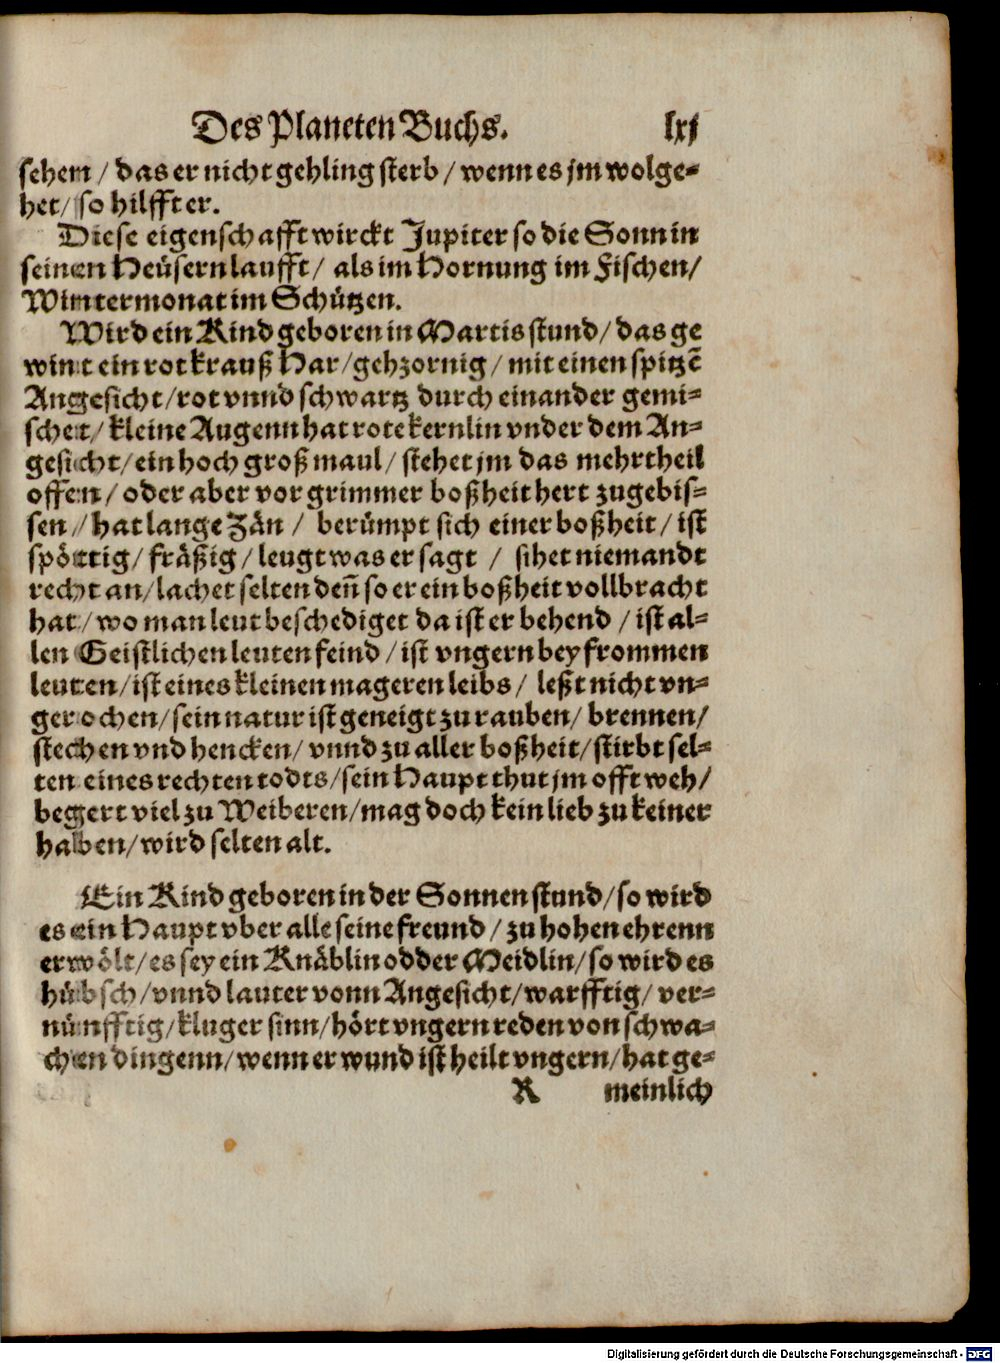 Des Planeten Buchs. lxj
sehem / das er nicht gehling sterb / wenn es jm wolge-
het / so hilfft er.
Diese eigenschafft wirckt Jupiter so die Sonn in
seinen Heüsern laufft / als im Hornung im Fischen /
Wintermonat im Schützen.
Wird ein Kind geboren in Martis stund / das ge
wint ein rot krauß Har / gehzornig / mit einen spitzē
Angesicht / rot vnnd schwartz durch einander gemi-
schet / kleine Augenn hat rote kernlin vnder dem An-
gesicht / ein hoch groß maul / stehet jm das mehrtheil
offen / oder aber vor grimmer boßheit hert zugebis-
sen / hat lange Zän / berümpt sich einer boßheit / ist
spöttig / fräßig / leugt was er sagt / sihet niemandt
recht an / lachet selten deñ so er ein boßheit vollbracht
hat / wo man leut beschediget da ist er behend / ist al-
len Geistlichen leuten feind / ist vngern bey frommen
leuten / ist eines kleinen mageren leibs / leßt nicht vn-
gerochen / sein natur ist geneigt zu rauben / brennen /
stechen vnd hencken / vnnd zu aller boßheit / stirbt sel-
ten eines rechten todts / sein Haupt thut jm offt weh /
begert viel zu Weiberen / mag doch kein lieb zu keiner
haben / wird selten alt.
Ein Kind geboren in der Sonnen stund / so wird
es ein Haupt vber alle seine freund / zu hohen ehrenn
erwölt / es sey ein Knäblin odder Meidlin / so wird es
hübsch / vnnd lauter vonn Angesicht / warfftig / ver-
nünfftig / kluger sinn / hört vngern reden von schwa-
chen dingenn / wenn er wund ist heilt vngern / hat ge-
R meinlich
Digitalisierung gefördert durch die Deutsche Forschungsgemeinschaft - DFG